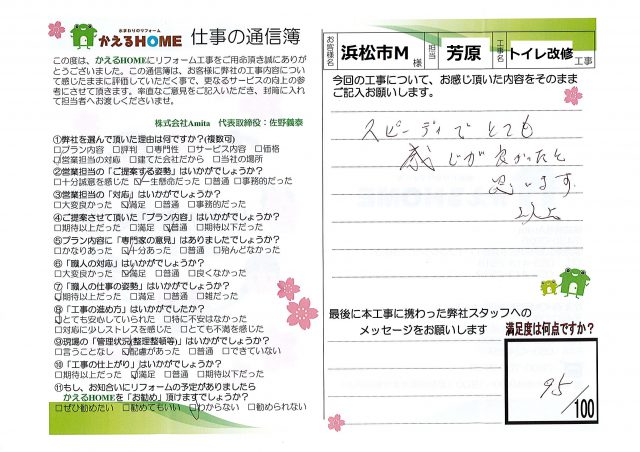 水まわりのリフォーム
かえるHOME 仕事の通信簿
この度は、かえるHOMEにリフォーム工事をご用命頂き誠にありが
とうございました。この通信簿は、お客様に弊社の工事内容につい
て感じたままに評価していただく事で、更なるサービスの向上の参
考にさせて頂きます。率直なご意見をご記入いただき、封筒に入れ
て担当者へお渡しくださいませ。
株式会社Amita 代表取締役：佐野義泰
①弊社を選んで頂いた理由は何ですか?(複数可)
□プラン内容 □評判 □専門性 □サービス内容 □価格
☑営業担当の対応 □建てた会社だから □当社の場所
②営業担当の「ご提案する姿勢」はいかがでしょうか?
□十分誠意を感じた ☑一生懸命だった □普通 □事務的だった
③営業担当の「対応」はいかがでしょうか?
□大変良かった ☑満足 □普通 □事務的だった
④ご提案させて頂いた「プラン内容」はいかがでしょうか?
□期待以上だった □満足 ☑普通 □期待以下だった
⑤プラン内容に「専門家の意見」はありましたでしょうか?
□かなりあった ☑十分あった □普通 □殆んどなかった
⑥「職人の対応」はいかがでしょうか?
□大変良かった ☑満足 □普通 □良くなかった
⑦「職人の仕事の姿勢」はいかがでしょうか?
☑期待以上だった □満足 □普通 □雑だった
⑧「工事の進め方」はいかがでしたか?
☑とても安心していられた □特に不安はなかった
□対応に少しストレスを感じた □とても不満を感じた
⑨現場の「管理状況(整理整頓等)」はいかがでしょうか?
□言うことなし ☑配慮があった □普通 □できていない
⑩「工事の仕上がり」はいかがでしょうか?
□期待以上だった ☑満足 □普通 □期待以下だった
⑪もし、お知合いにリフォームの予定がありましたら
かえるHOMEを「お勧め」頂けますでしょうか?
□ぜひ勧めたい □勧めてもいい ☑わからない □勧められない
お客様名 浜松市M 様 担当 芳原 工事名 トイレ改修 工事
今回の工事について、お感じ頂いた内容をそのまま
ご記入お願いします。
スピーディでとても
感じが良かったと
思います。
以上
最後に本工事に携わった弊社スタッフへの
メッセージをお願いします
満足度は何点ですか?
95
/100